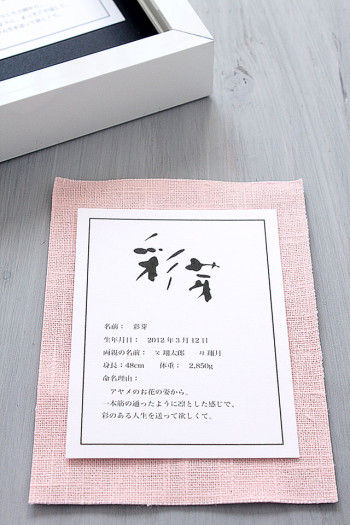 彩芽
名前： 彩芽
生年月日： 2012年3月12日
両親の名前： 父 翔太郎 母 翔月
身長：48cm 体重： 2,850g
命名理由：
アヤメのお花の姿から。
一本筋の通ったように凛とした感じで、
彩のある人生を送って欲しくて。